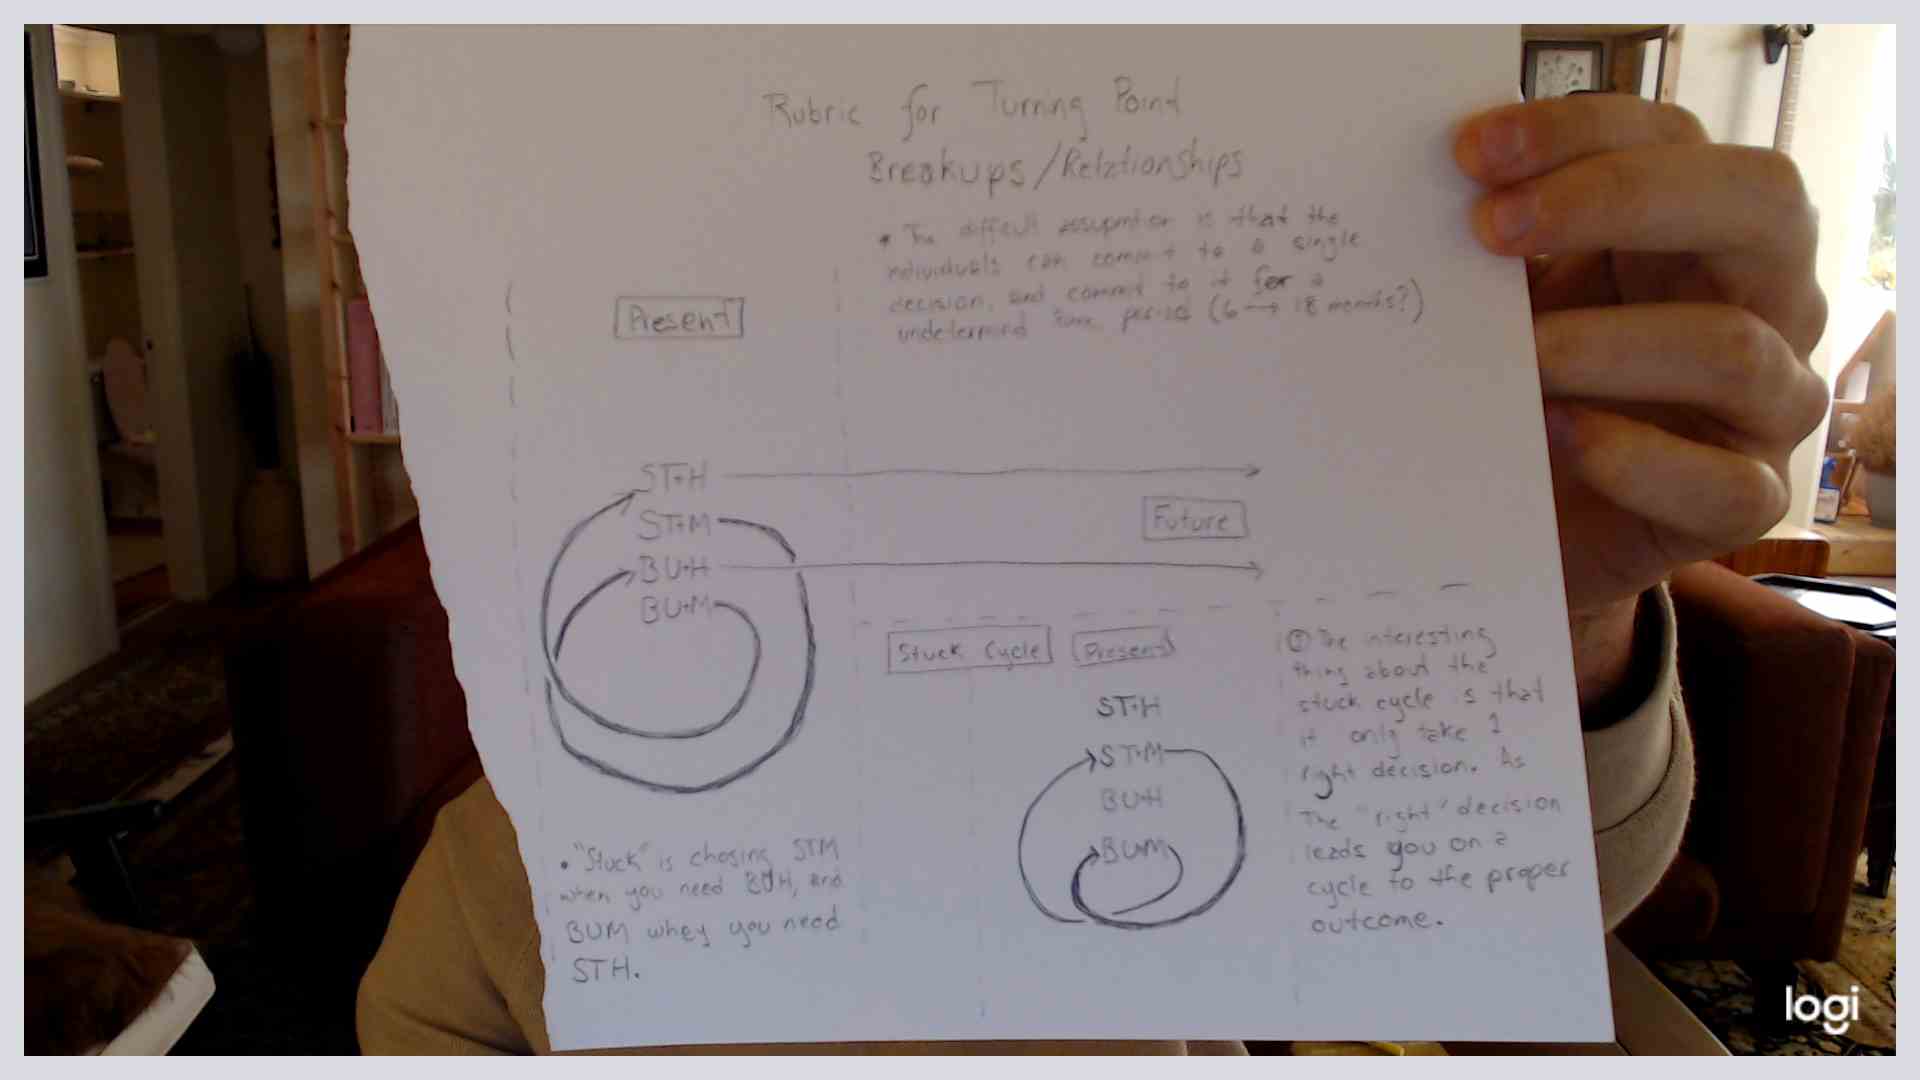 Rubric for Turning Point
Breakups/Relationships
* The difficult assupmtion is that the
individuals can commit to a single
decision, and commit to it for a
undetermined time period (6 → 18 months?)
Present
ST+H
ST+M
BU+H
BU+M
Future
• "Stuck" is chosing STM
when you need BUH, and
BUM whey you need
STH.
Stuck Cycle
Present
ST+H
ST+M
BU+H
BUM
The interesting
thing about the
stuck cycle is that
it only take 1
right decision. As
The "right" decision
leads you on a
cycle to the proper
outcome.
logi